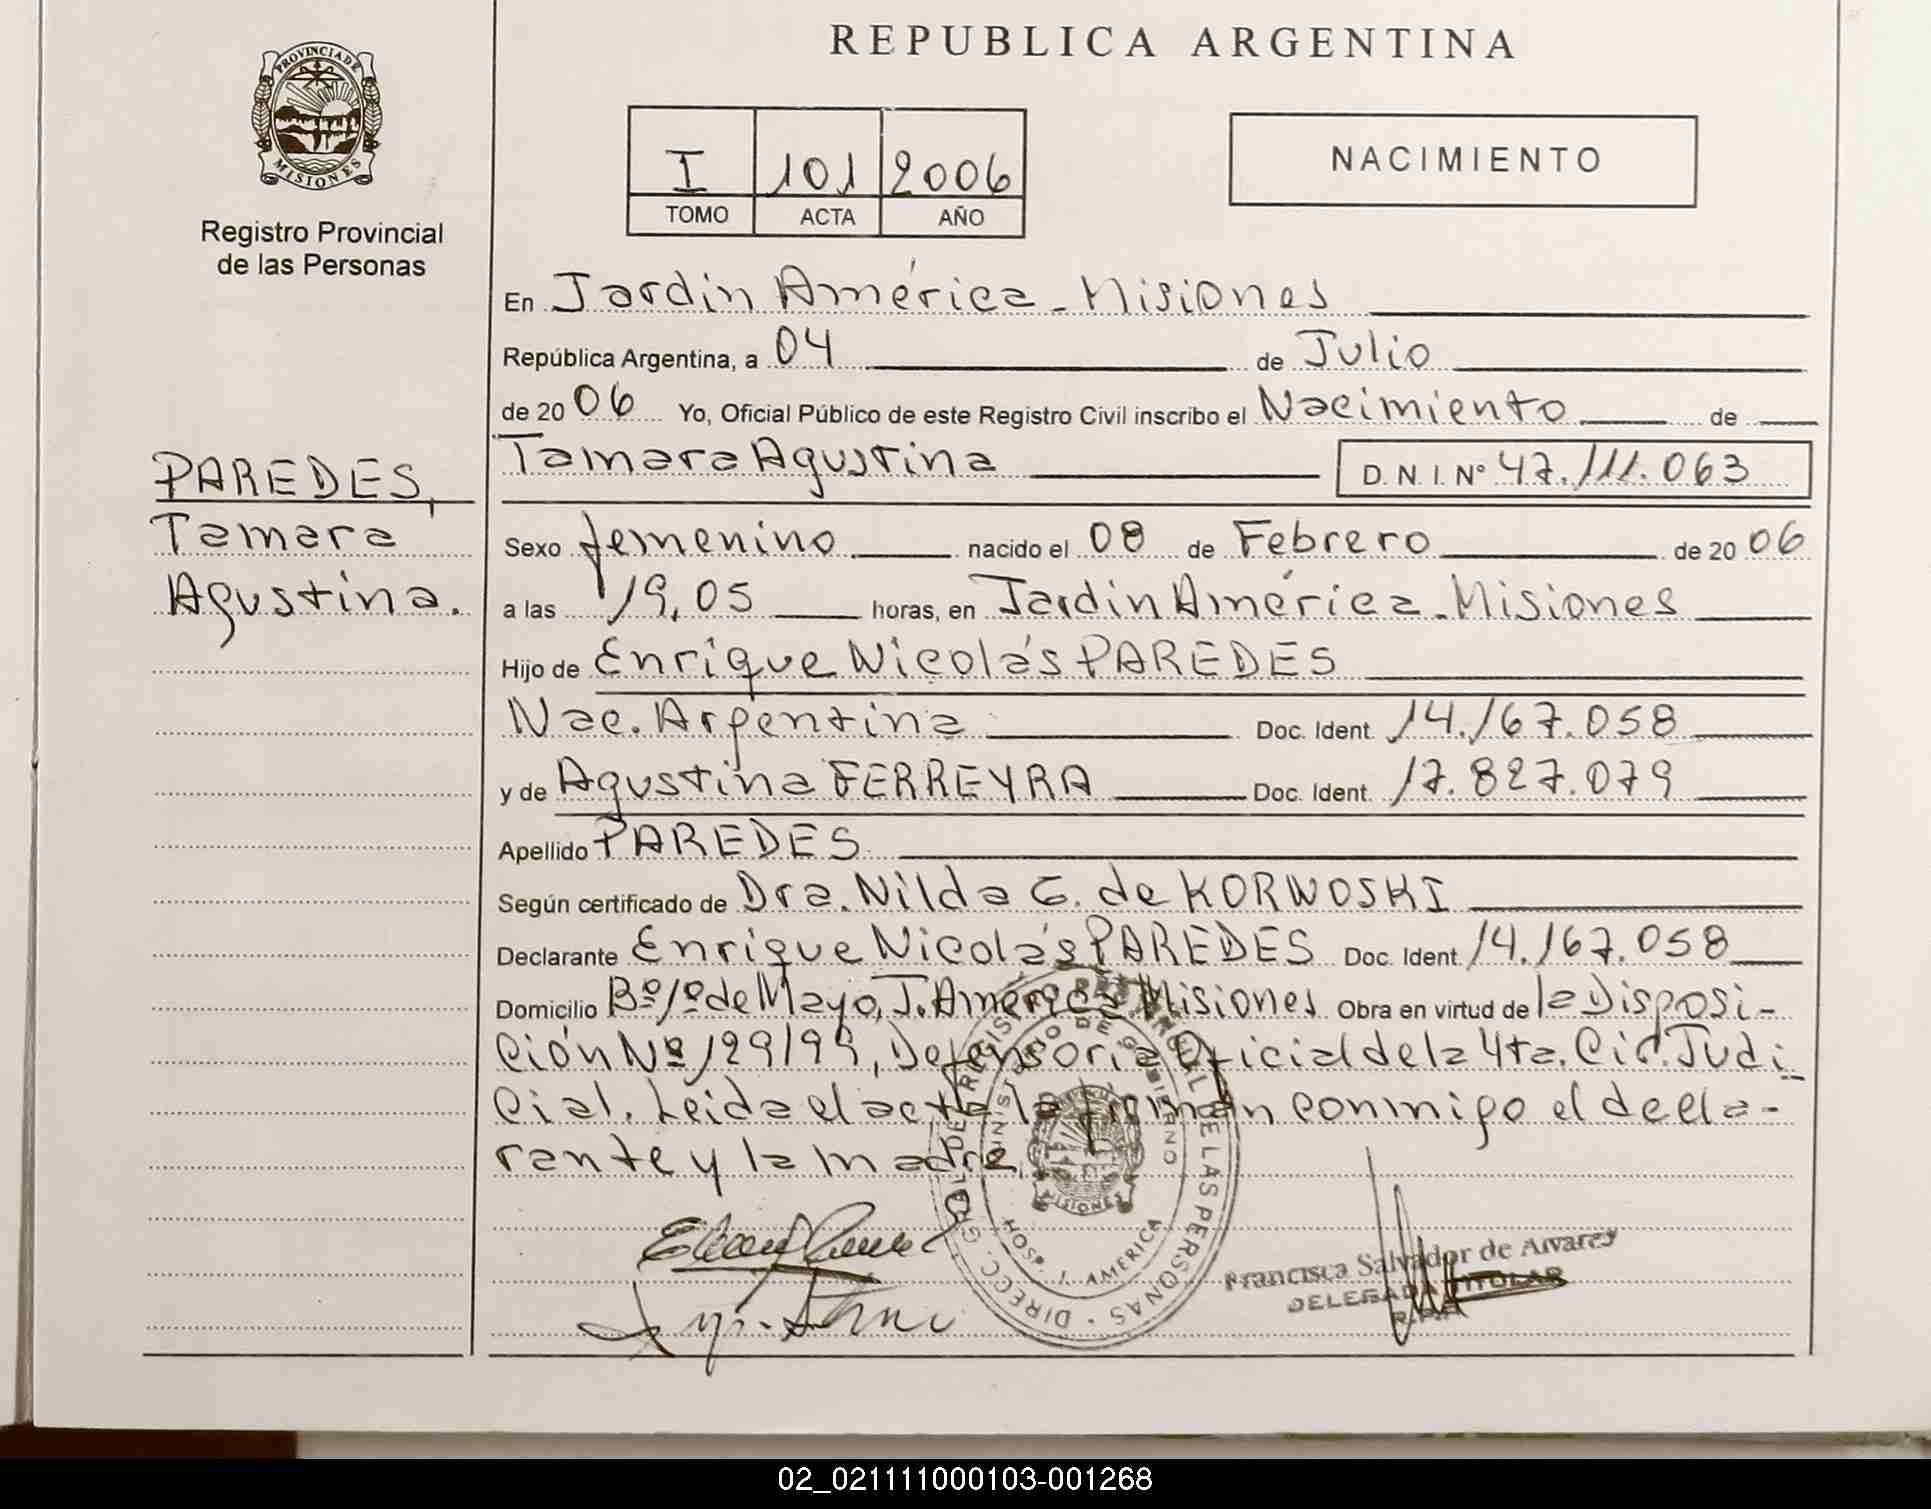 REPUBLICA ARGENTINA
PROVINCIA DE
MISIONES
Registro Provincial
de las Personas
I 101 2006
TOMO ACTA AÑO
NACIMIENTO
PAREDES,
Tamara
Agustina.
En Jardín América - Misiones
República Argentina, a 04 de Julio
de 2006 Yo, Oficial Público de este Registro Civil inscribo el Nacimiento de
Tamara Agustina D. N. I. Nº 47.111.063
Sexo femenino nacido el 08 de Febrero de 2006
a las 19,05 horas, en Jardín América - Misiones
Hijo de Enrique Nicolás PAREDES
Nac. Argentina Doc. Ident. 14.167.058
y de Agustina FERREYRA Doc. Ident. 17.827.079
Apellido PAREDES
Según certificado de Dra. Nilda G. de KORWOSKI
Declarante Enrique Nicolás PAREDES Doc. Ident. 14.167.058
Domicilio Bº 1º de Mayo, J. América Misiones Obra en virtud de la Disposi-
ción Nº 129/99, Defensoría Oficial de la 4ta. Cir. Judi
cial. Leída el acta la firman conmigo el decla-
rante y la madre.
DIRECC. GRAL DE REGISTRO PROVINCIAL DE LAS PERSONAS
MINISTERIO DE GOBIERNO
MISIONES
HOSP. J. AMERICA
Francisca Salvador de Alvarez
DELEGADA TITULAR
R.P.P.
02_021111000103-001268